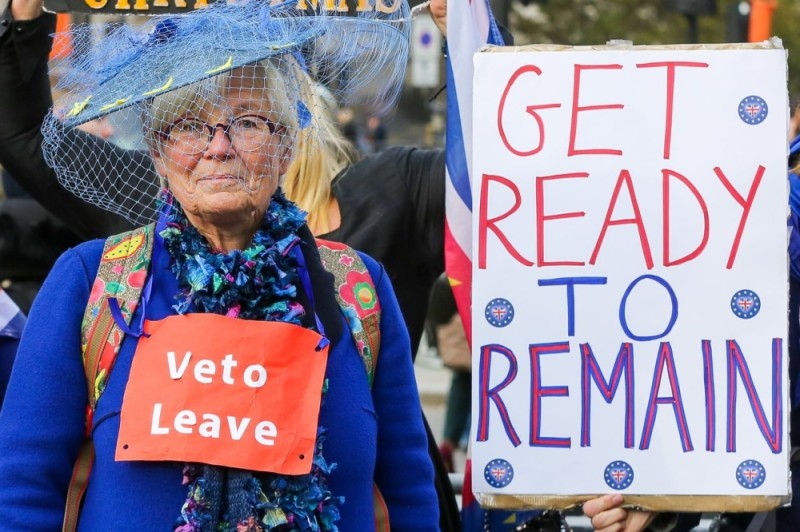 CHRISTMAS
Veto
Leave
GET
READY
TO
REMAIN